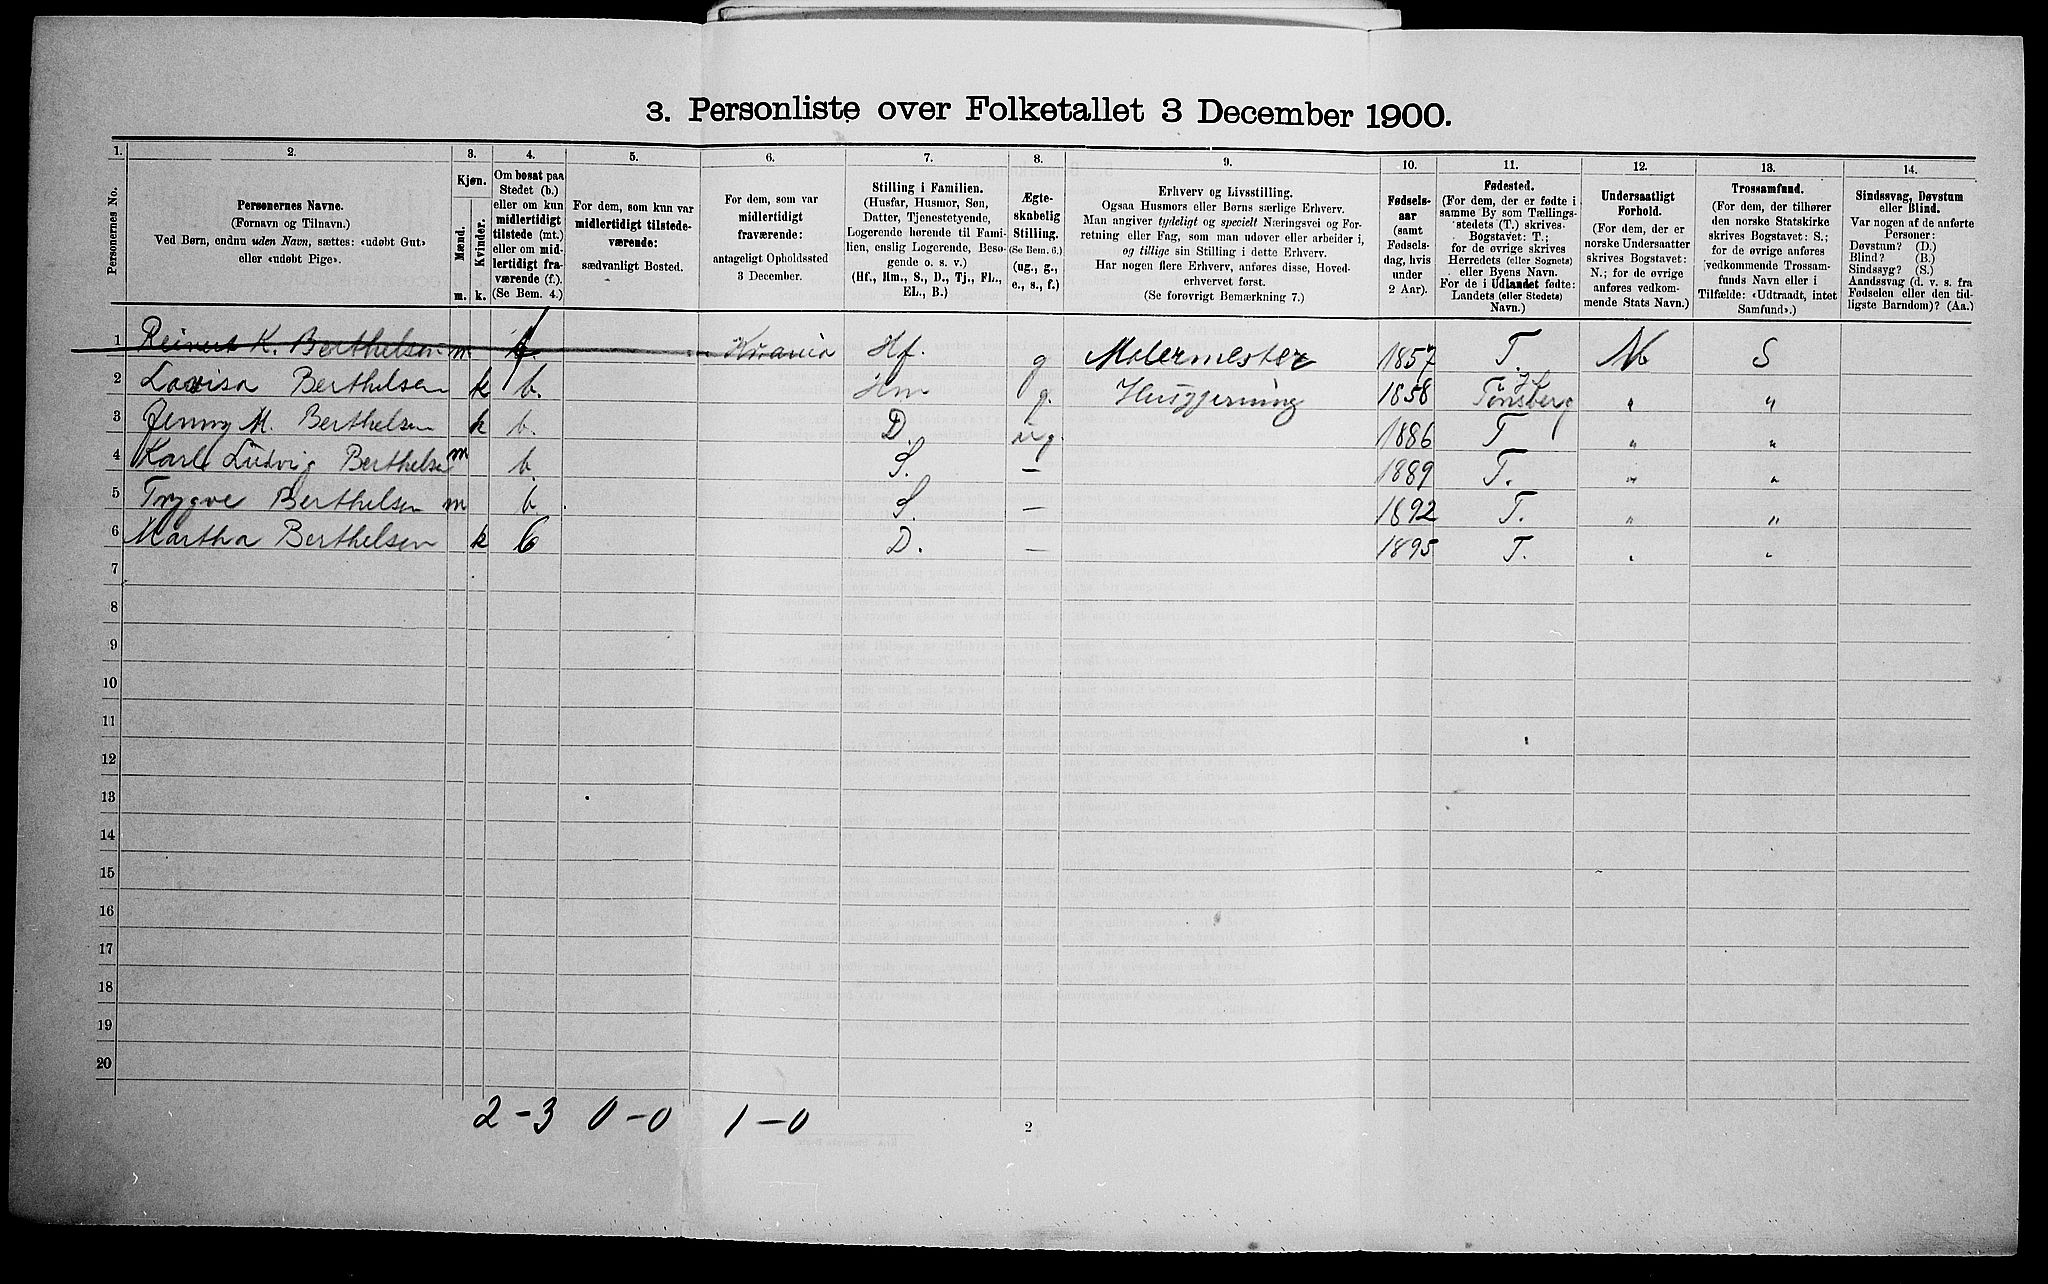 3. Personliste over Folketallet 3 December 1900.
1. 2. 3. 4. 5. 6. 7. 8. 9. 10. 11. 12. 13. 14.
Personernes No.
Personernes Navne.
(Fornavn og Tilnavn.)
Ved Børn, endnu uden Navn, sættes: «udøbt Gut»
eller «udøbt Pige».
Kjøn.
Mænd.
Kvinder.
m. k.
Om bosat paa
Stedet (b.)
eller om kun
midlertidigt
tilstede (mt.)
eller om mid-
lertidigt fra-
værende (f.).
(Se Bem. 4.)
For dem, som kun var
midlertidigt tilstede-
værende:
sædvanligt Bosted.
For dem, som var
midlertidigt
fraværende:
antageligt Opholdssted
3 December.
Stilling i Familien.
(Husfar, Husmor, Søn,
Datter, Tjenestetyende,
Logerende hørende til Fami-
lien, enslig Logerende, Besø-
gende o. s. v.)
(Hf., Hm., S., D., Tj., FL.,
EL., B.)
Ægte-
skabelig
Stilling.
(Se Bem. 6.)
(ug., g.,
e., s., f.)
Erhverv og Livsstilling.
Ogsaa Husmors eller Børns særlige Erhverv.
Man angiver tydeligt og specielt Næringsvei og For-
retning eller Fag, som man udøver eller arbeider i,
og tillige sin Stilling i dette Erhverv.
Har nogen flere Erhverv, anføres disse, Hoved-
erhvervet først.
(Se forøvrigt Bemærkning 7.)
Fødsels-
aar
(samt
Fødsels-
dag, hvis
under
2 Aar).
Fødested.
(For dem, der er fødte i
samme By som Tællings-
stedets (T.) skrives-
Bogstavet: T.;
for de øvrige skrives
Herredets (eller Sognets)
eller Byens Navn.
For de i Udlandet fødte:
Landets (eller Stedets)
Navn.)
Undersaatligt
Forhold.
(For dem, der er
norske Undersaatter
skrives Bogstavet:
N.; for de øvrige
anføres vedkom-
mende Stats Navn.)
Trossamfund.
(For dem, der tilhører
den norske Statskirke
skrives Bogstavet: S.;
for de øvrige anføres
vedkommende Trossam-
funds Navn eller i
Tilfælde: «Udtraadt, intet
Samfund».)
Sindssvag, Døvstum
eller Blind.
Var nogen af de anførte
Personer:
Døvstum? (D.)
Blind? (B.)
Sindssyg? (S.)
Aandssvag (d. v. s. fra
Fødselen eller den tid-
ligste Barndom)? (Aa.)
1 Reinert K. Berthelsen m. f. Krania Hf. g Malermester 1857 T. N S
2 Lovisa Berthelsen k b. Hm g. Husgjerning 1858 Tønsberg " "
3 Jenny M. Berthelsen k b. D. ug. 1886 T " "
4 Karl Ludvig Berthelse m b. S. — 1889 T. " "
5 Trygve Berthelsen m b. S. — 1892 T. " "
6 Martha Berthelsen k b D. — 1895 T. " "
7
8
9
10
11
12
13
14
15
16
17
18
19
20
2 – 3 0 – 0 1 – 0
2